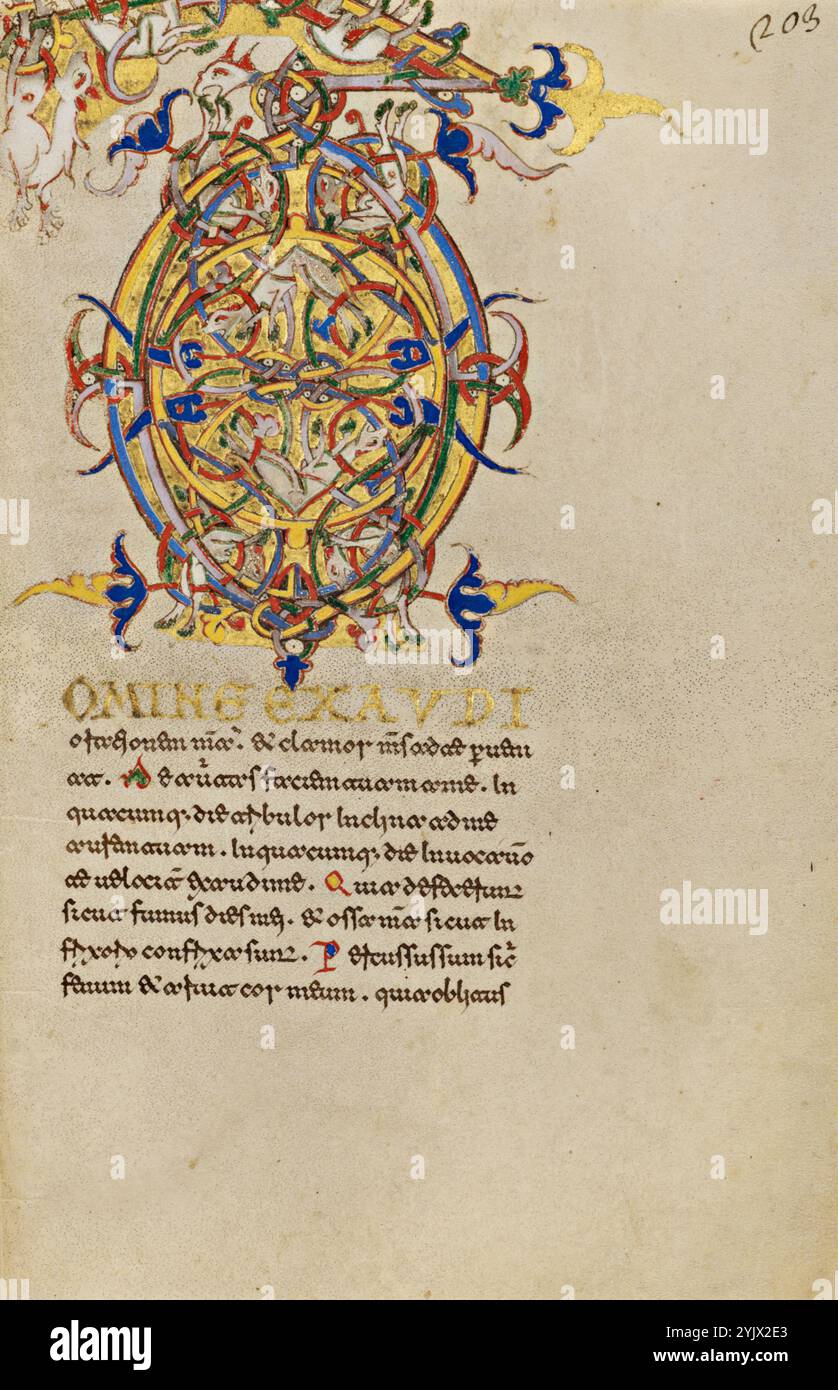 203
OMINE EXAVDI
orationem meā. & clamor m̄s ad te ꝑueni
at. Ne auertas faciem tuam a me. In
quacumq; die tribulor Inclina ad me
aurem tuam. In quacumq; die Inuocauero
te uelocit̄ exaudi me. Quia defecerunt
sicut fumus dies mei. & ossa mea sicut In
frixorio confrixa sunt. Percussus sum sic̄
fenum & aruit cor meum. quia oblitus
alamy
Image ID: 2YJX2E3
www.alamy.com